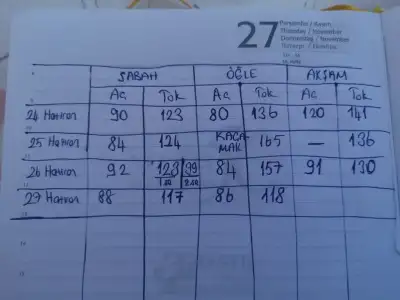 27
Perşembe / Kasım
Thursday / November
Donnerstag / November
SABAH ÖĞLE AKŞAM
Aç Tok Aç Tok Aç Tok
24 Haziran 90 123 80 136 120 141
25 Haziran 84 124 KAÇAMAK 165 — 136
26 Haziran 92 123 99 84 157 91 130
27 Haziran 88 117 86 118